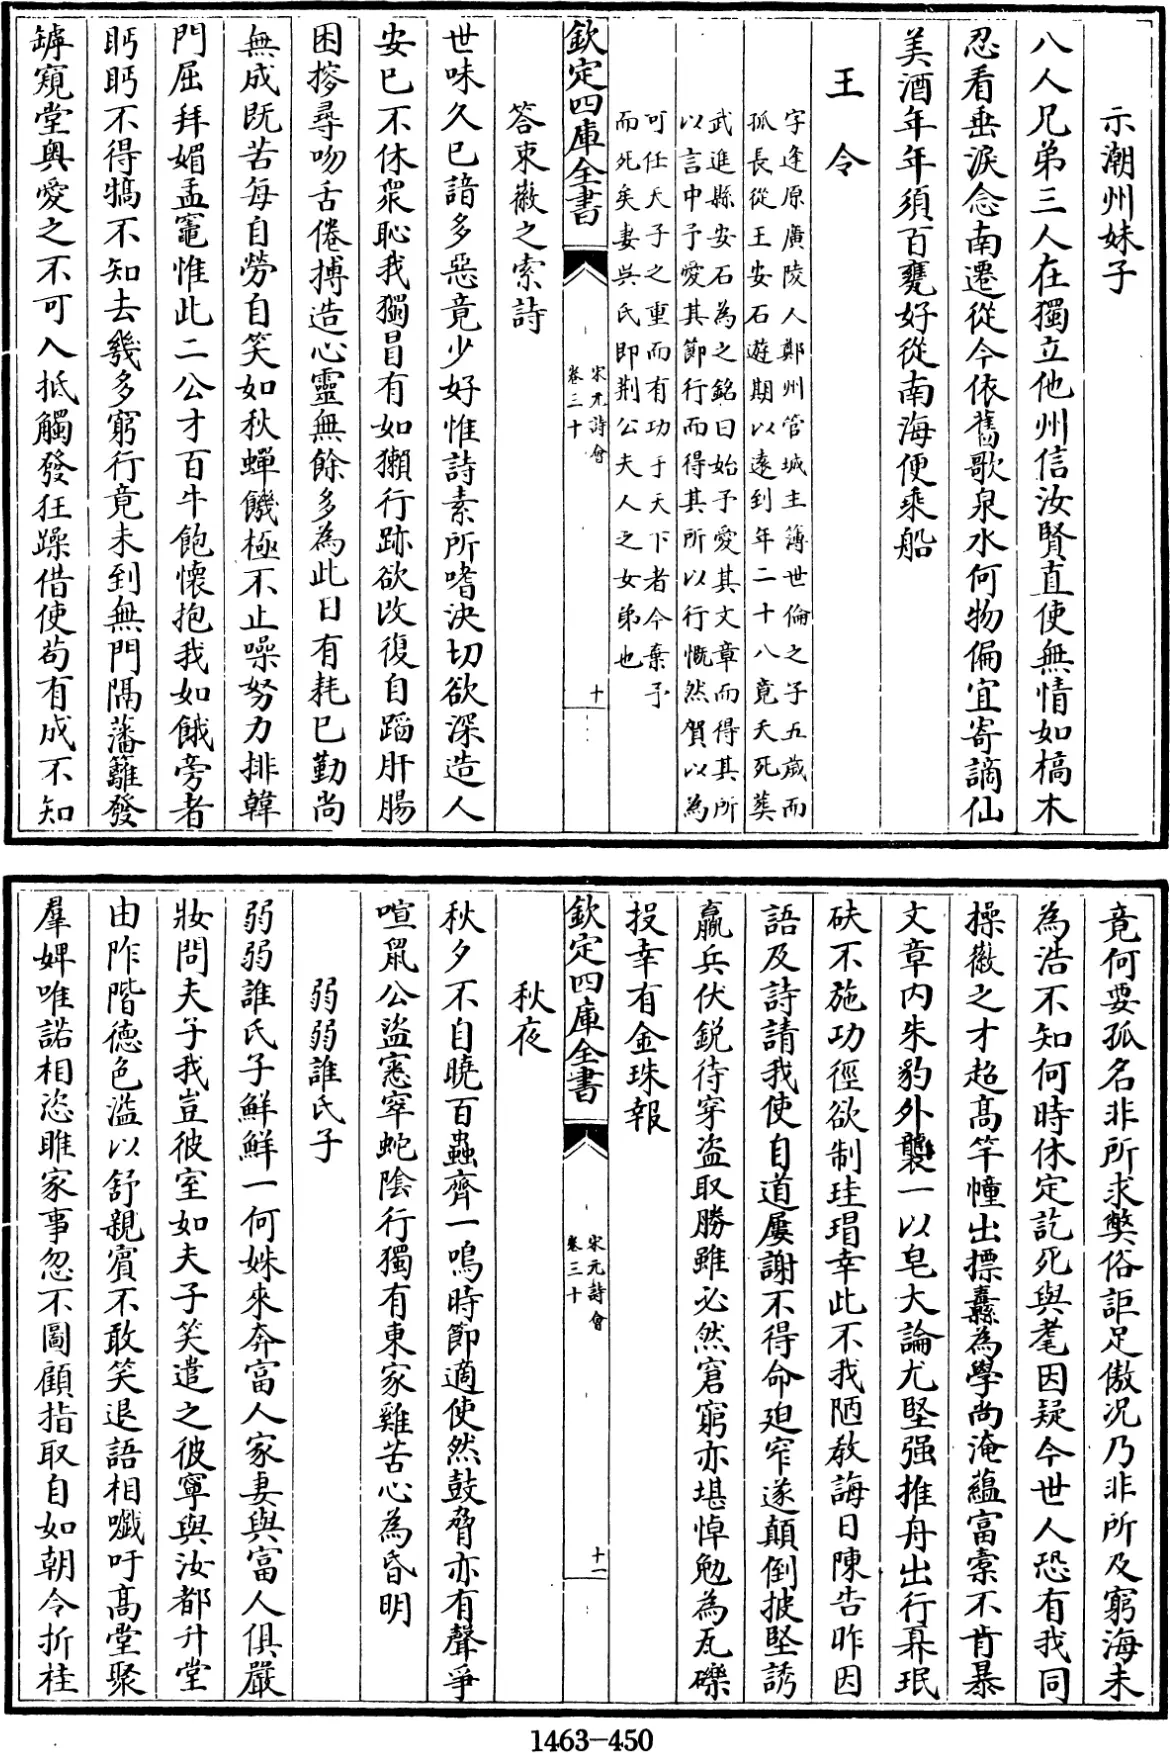 示潮州妹子
八人兄弟三人在獨立他州信汝賢直使無情如槁木
忍看垂淚念南遷從今依舊歌泉水何物偏宜寄謫仙
美酒年年須百甕好從南海便乘船
王令
字逢原廣陵人鄭州管城主簿世倫之子五歲而
孤長從王安石遊期以遠到年二十八竟夭死葬
武進縣安石為之銘曰始予愛其文章而得其所
以言中予愛其節行而得其所以行慨然賀以為
可任天子之重而有功于天下者今棄予
而死矣妻吳氏即荆公夫人之女弟也
欽定四庫全書
宋元詩會
卷三十
十
答束徽之索詩
世味久已諳多惡竟少好惟詩素所嗜決切欲深造人
安已不休衆恥我獨冒有如獺行跡欲改復自蹈肝腸
困摎尋吻舌倦搏造心靈無餘多為此日有耗已勤尚
無成既苦每自勞自笑如秋蟬饑極不止噪努力排韓
門屈拜媚孟竈惟此二公才百牛飽懷抱我如餓旁者
眄眄不得犒不知去幾多窮行竟未到無門隔藩籬發
罅窺堂奥愛之不可入抵觸發狂躁借使茍有成不知
竟何要孤名非所求獘俗詎足傲况乃非所及窮海未
為浩不知何時休定訖死與耄因疑今世人恐有我同
操徽之才超髙竿幢出摽纛為學尚淹藴富槖不肯暴
文章内朱豹外襲一以皂大論尤堅强推舟出行奡珉
砆不施功徑欲制珪瑁幸此不我陋教誨日陳告昨因
語及詩請我使自道屢謝不得命廹窄遂顛倒披堅誘
羸兵伏鋭待穿盜取勝雖必然窘窮亦堪悼勉為瓦礫
投幸有金珠報
欽定四庫全書
宋元詩會
卷三十
十一
秋夜
秋夕不自曉百蟲齊一鳴時節適使然鼓脅亦有聲爭
喧鼠公盜窸窣蛇陰行獨有東家雞苦心為昏明
弱弱誰氏子
弱弱誰氏子鮮鮮一何姝來奔富人家妻與富人俱嚴
妝問夫子我豈彼室如夫子笑遣之彼寧與汝都升堂
由阼階德色滥以舒親賓不敢笑退語相嚱吁髙堂聚
羣婢唯諾相恣睢家事忽不圖顧指取自如朝令折桂
1463-450